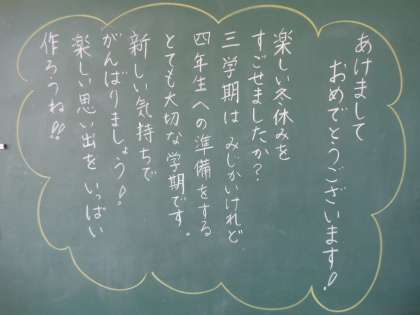 あけまして
おめでとうございます！
楽しい冬休みを
すごせましたか？
三学期は みじかいけれど、
四年生への準備をする
とても大切な学期です。
新しい気持ちで
がんばりましょう！
楽しい思い出を いっぱい
作ろうね!!